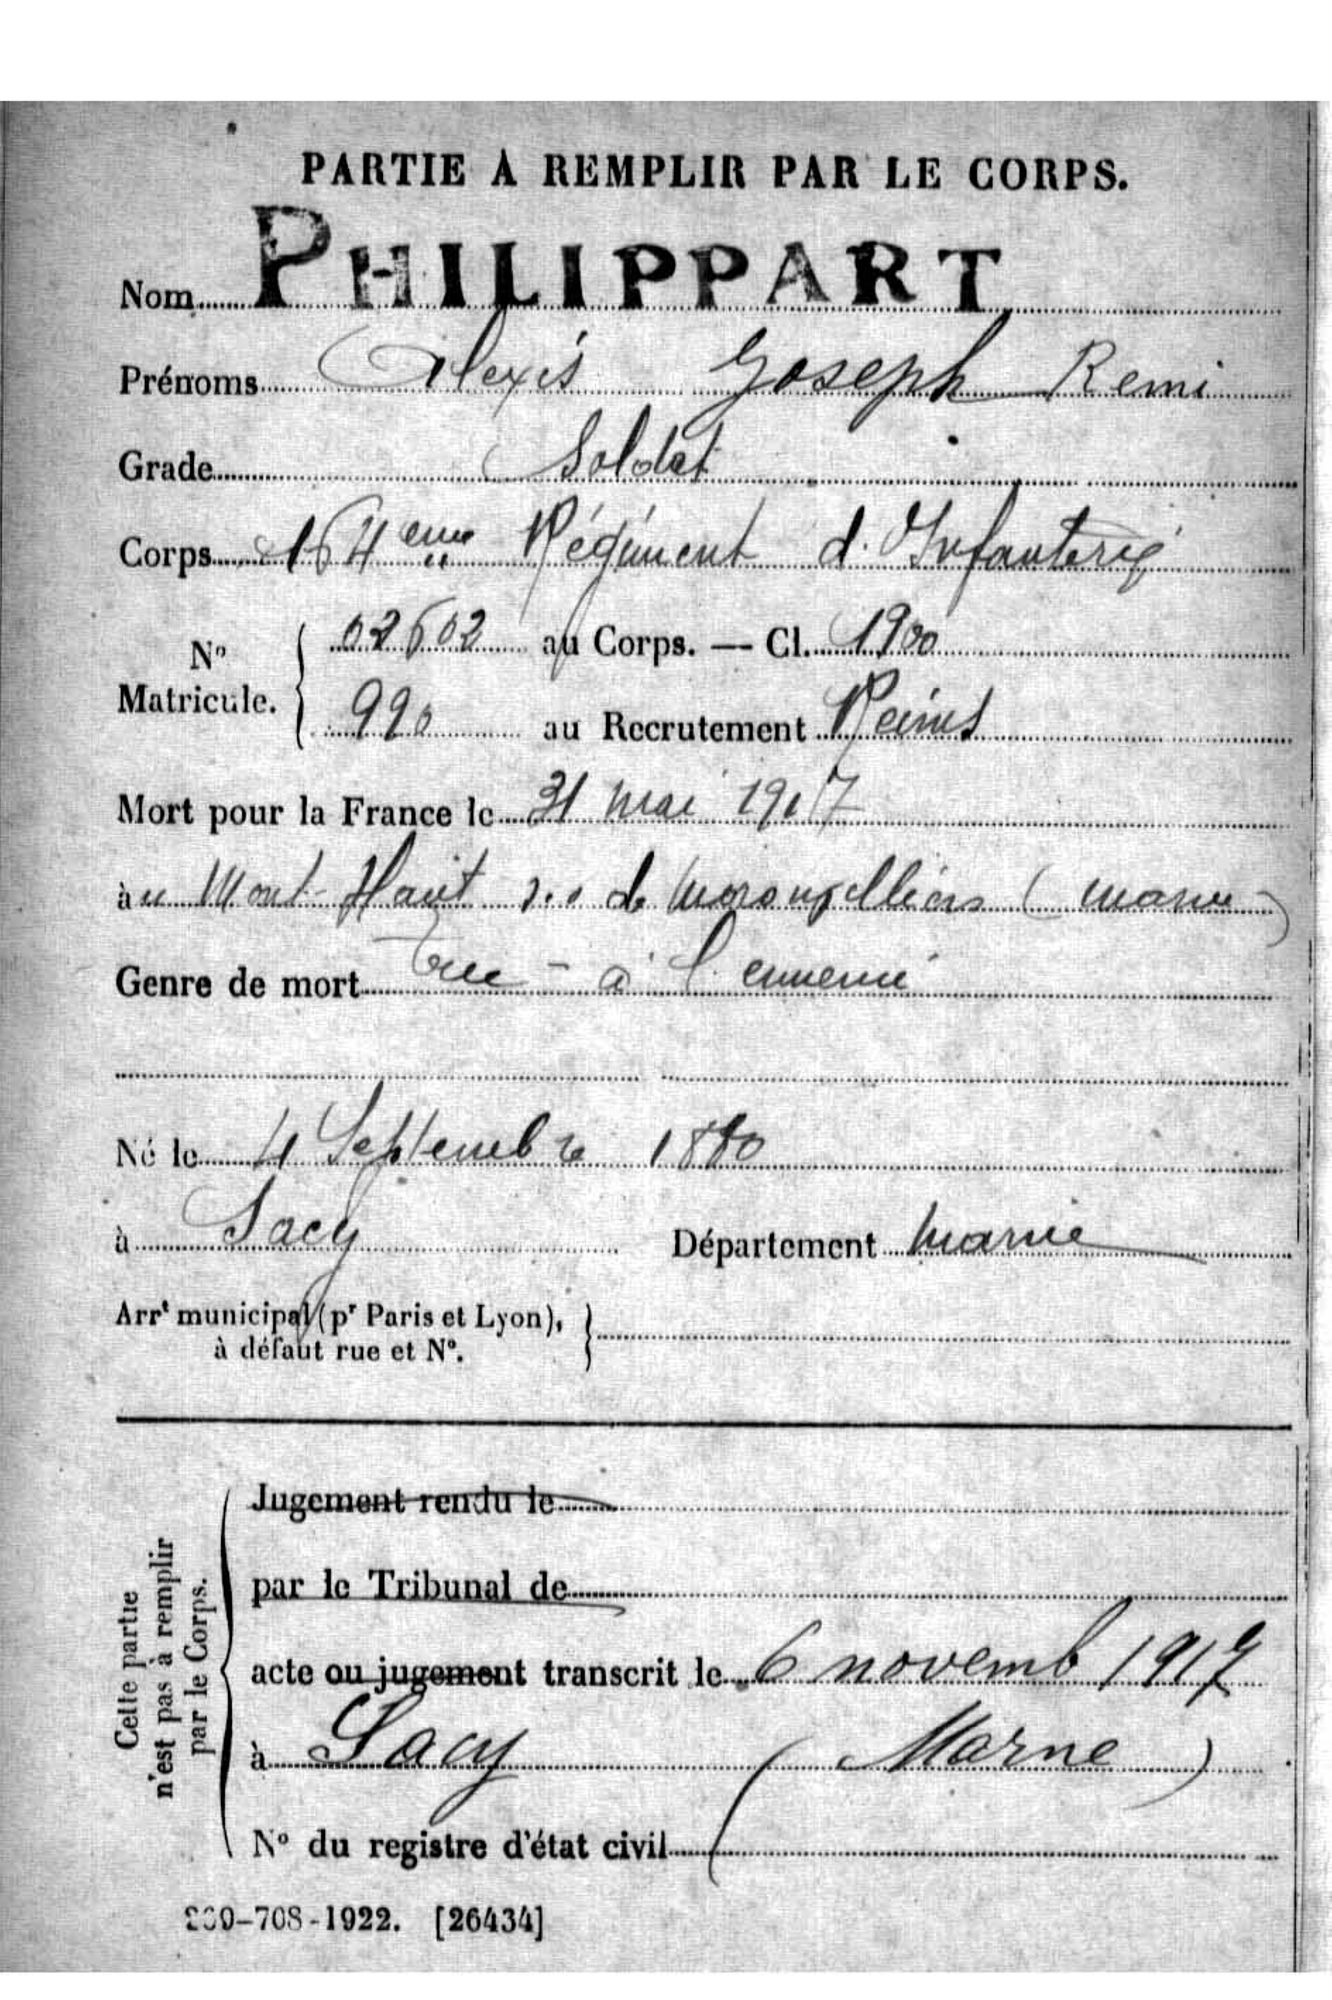 PARTIE A REMPLIR PAR LE CORPS.
Nom PHILIPPART
Prénoms Alexis Joseph Remi
Grade Soldat
Corps 164eme Régiment d'Infanterie
No Matricule. 02602 au Corps. — Cl. 1900
990 au Recrutement Reims
Mort pour la France le 31 mai 1917
àu Mont-Haut de (Marne)
Genre de mort Tué à l'ennemi
Né le 4 Septembre 1880
à Sacy Département Marne
Arrt municipal (pr Paris et Lyon),
à défaut rue et No.
Cette partie
n'est pas à remplir
par le Corps.
Jugement rendu le
par le Tribunal de
acte ou jugement transcrit le 6 novemb 1917
à Sacy (Marne)
No du registre d'état civil
-708-1922. [26434]